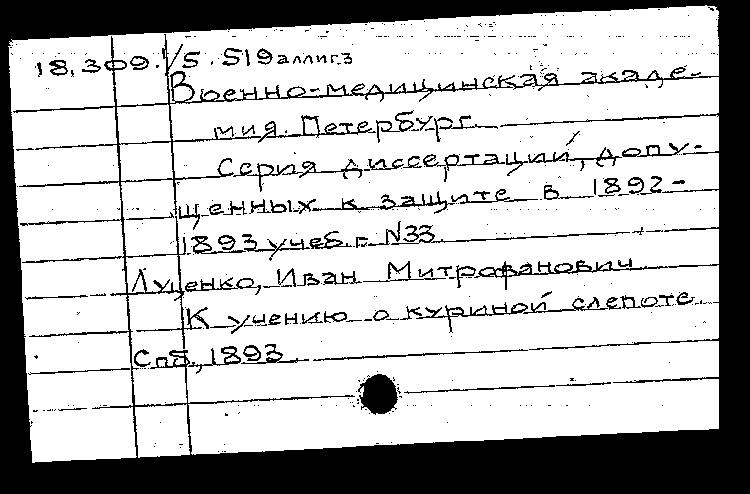 18.309.1/5.519 аллиг.3
Военно-медицинская акаде-
мия. Петербург.
Серия диссертаций, допу-
щенных к защите в 1892-
1893 учеб. г. N33.
Луценко, Иван Митрофанович
К учению о куриной слепоте.
Спб., 1893.